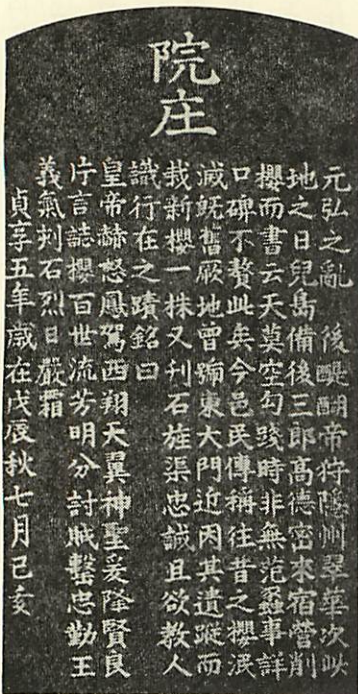 院庄
元弘之亂　後醍醐帝狩隱州翠華次此
地之日兒島備後三郎高德密來宿營削
櫻而書云天莫空勾踐時非無范蠡事詳
口碑不贅此矣今邑民傳稱往昔之櫻泯
滅既舊厥地曾號東大門近因其遺蹤而
栽新櫻一株又刊石旌渠忠誠且欲教人
識行在之蹟銘曰
皇帝赫怒鳳駕西翔天翼神聖爰降賢良
片言誌櫻百世流芳明分討賊罄忠勤王
義氣刻石烈日嚴霜
貞享五年歲在戊辰秋七月己亥